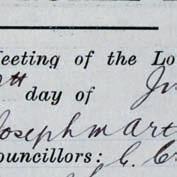 eeting of the Lo
th day of Ju
Joseph Mart
ouncillors: C.